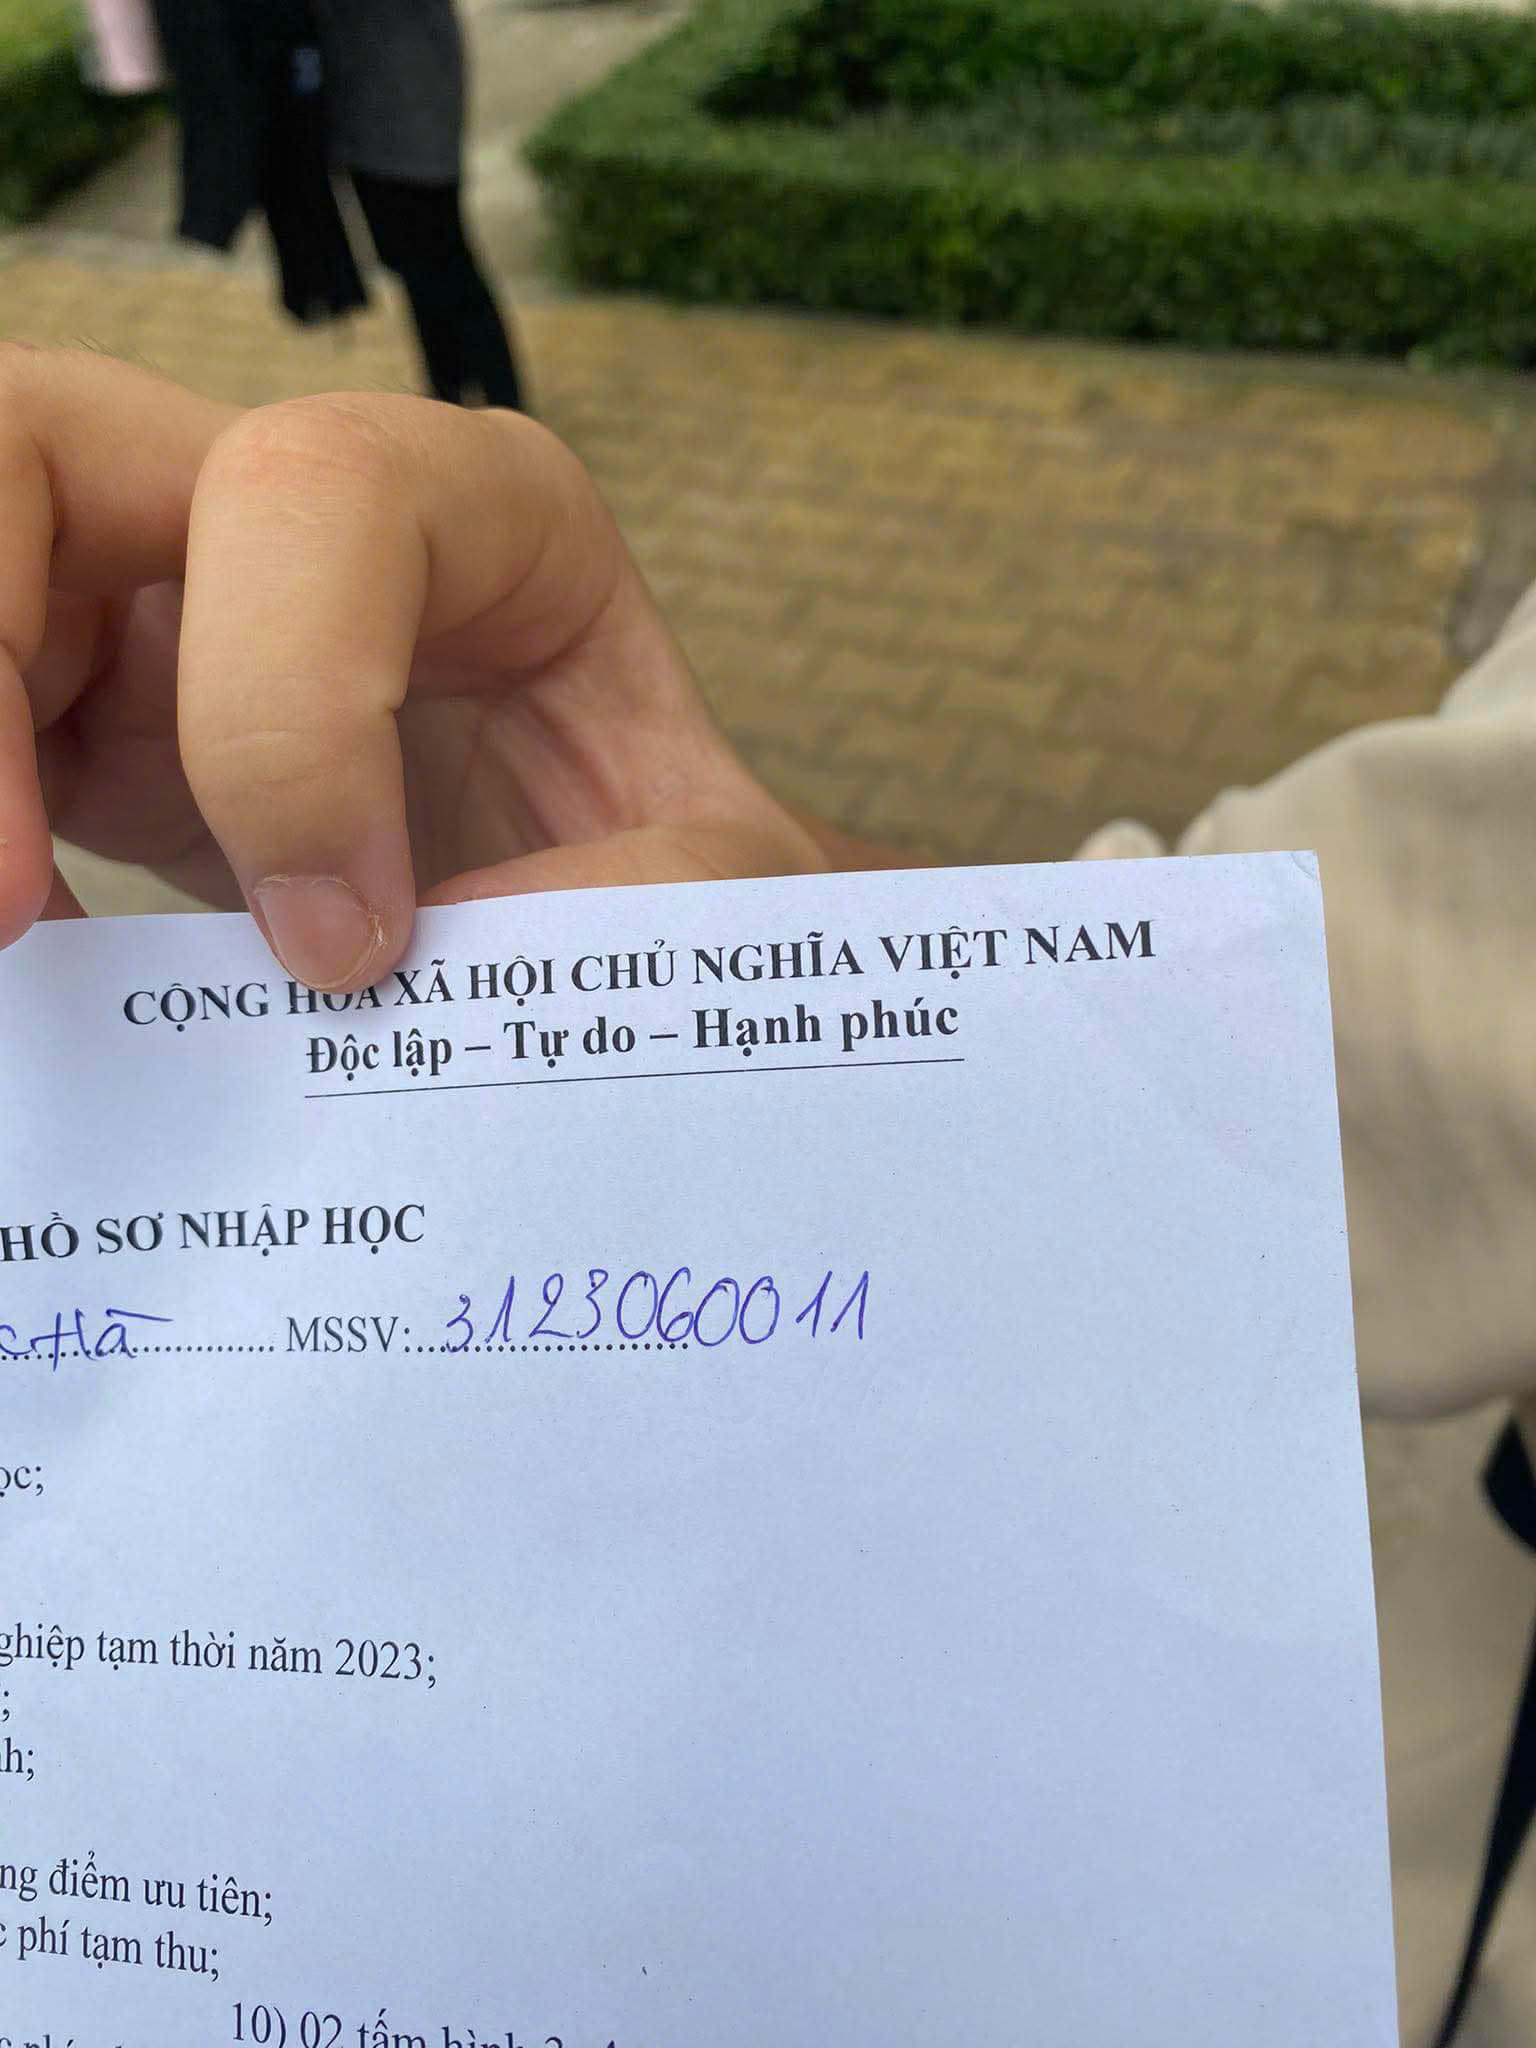 CỘNG HÒA XÃ HỘI CHỦ NGHĨA VIỆT NAM
Độc lập – Tự do – Hạnh phúc
HỒ SƠ NHẬP HỌC
Hà MSSV: 3123060011
ọc;
ghiệp tạm thời năm 2023;
;
nh;
ng điểm ưu tiên;
c phí tạm thu;
10) 02 tấm hình